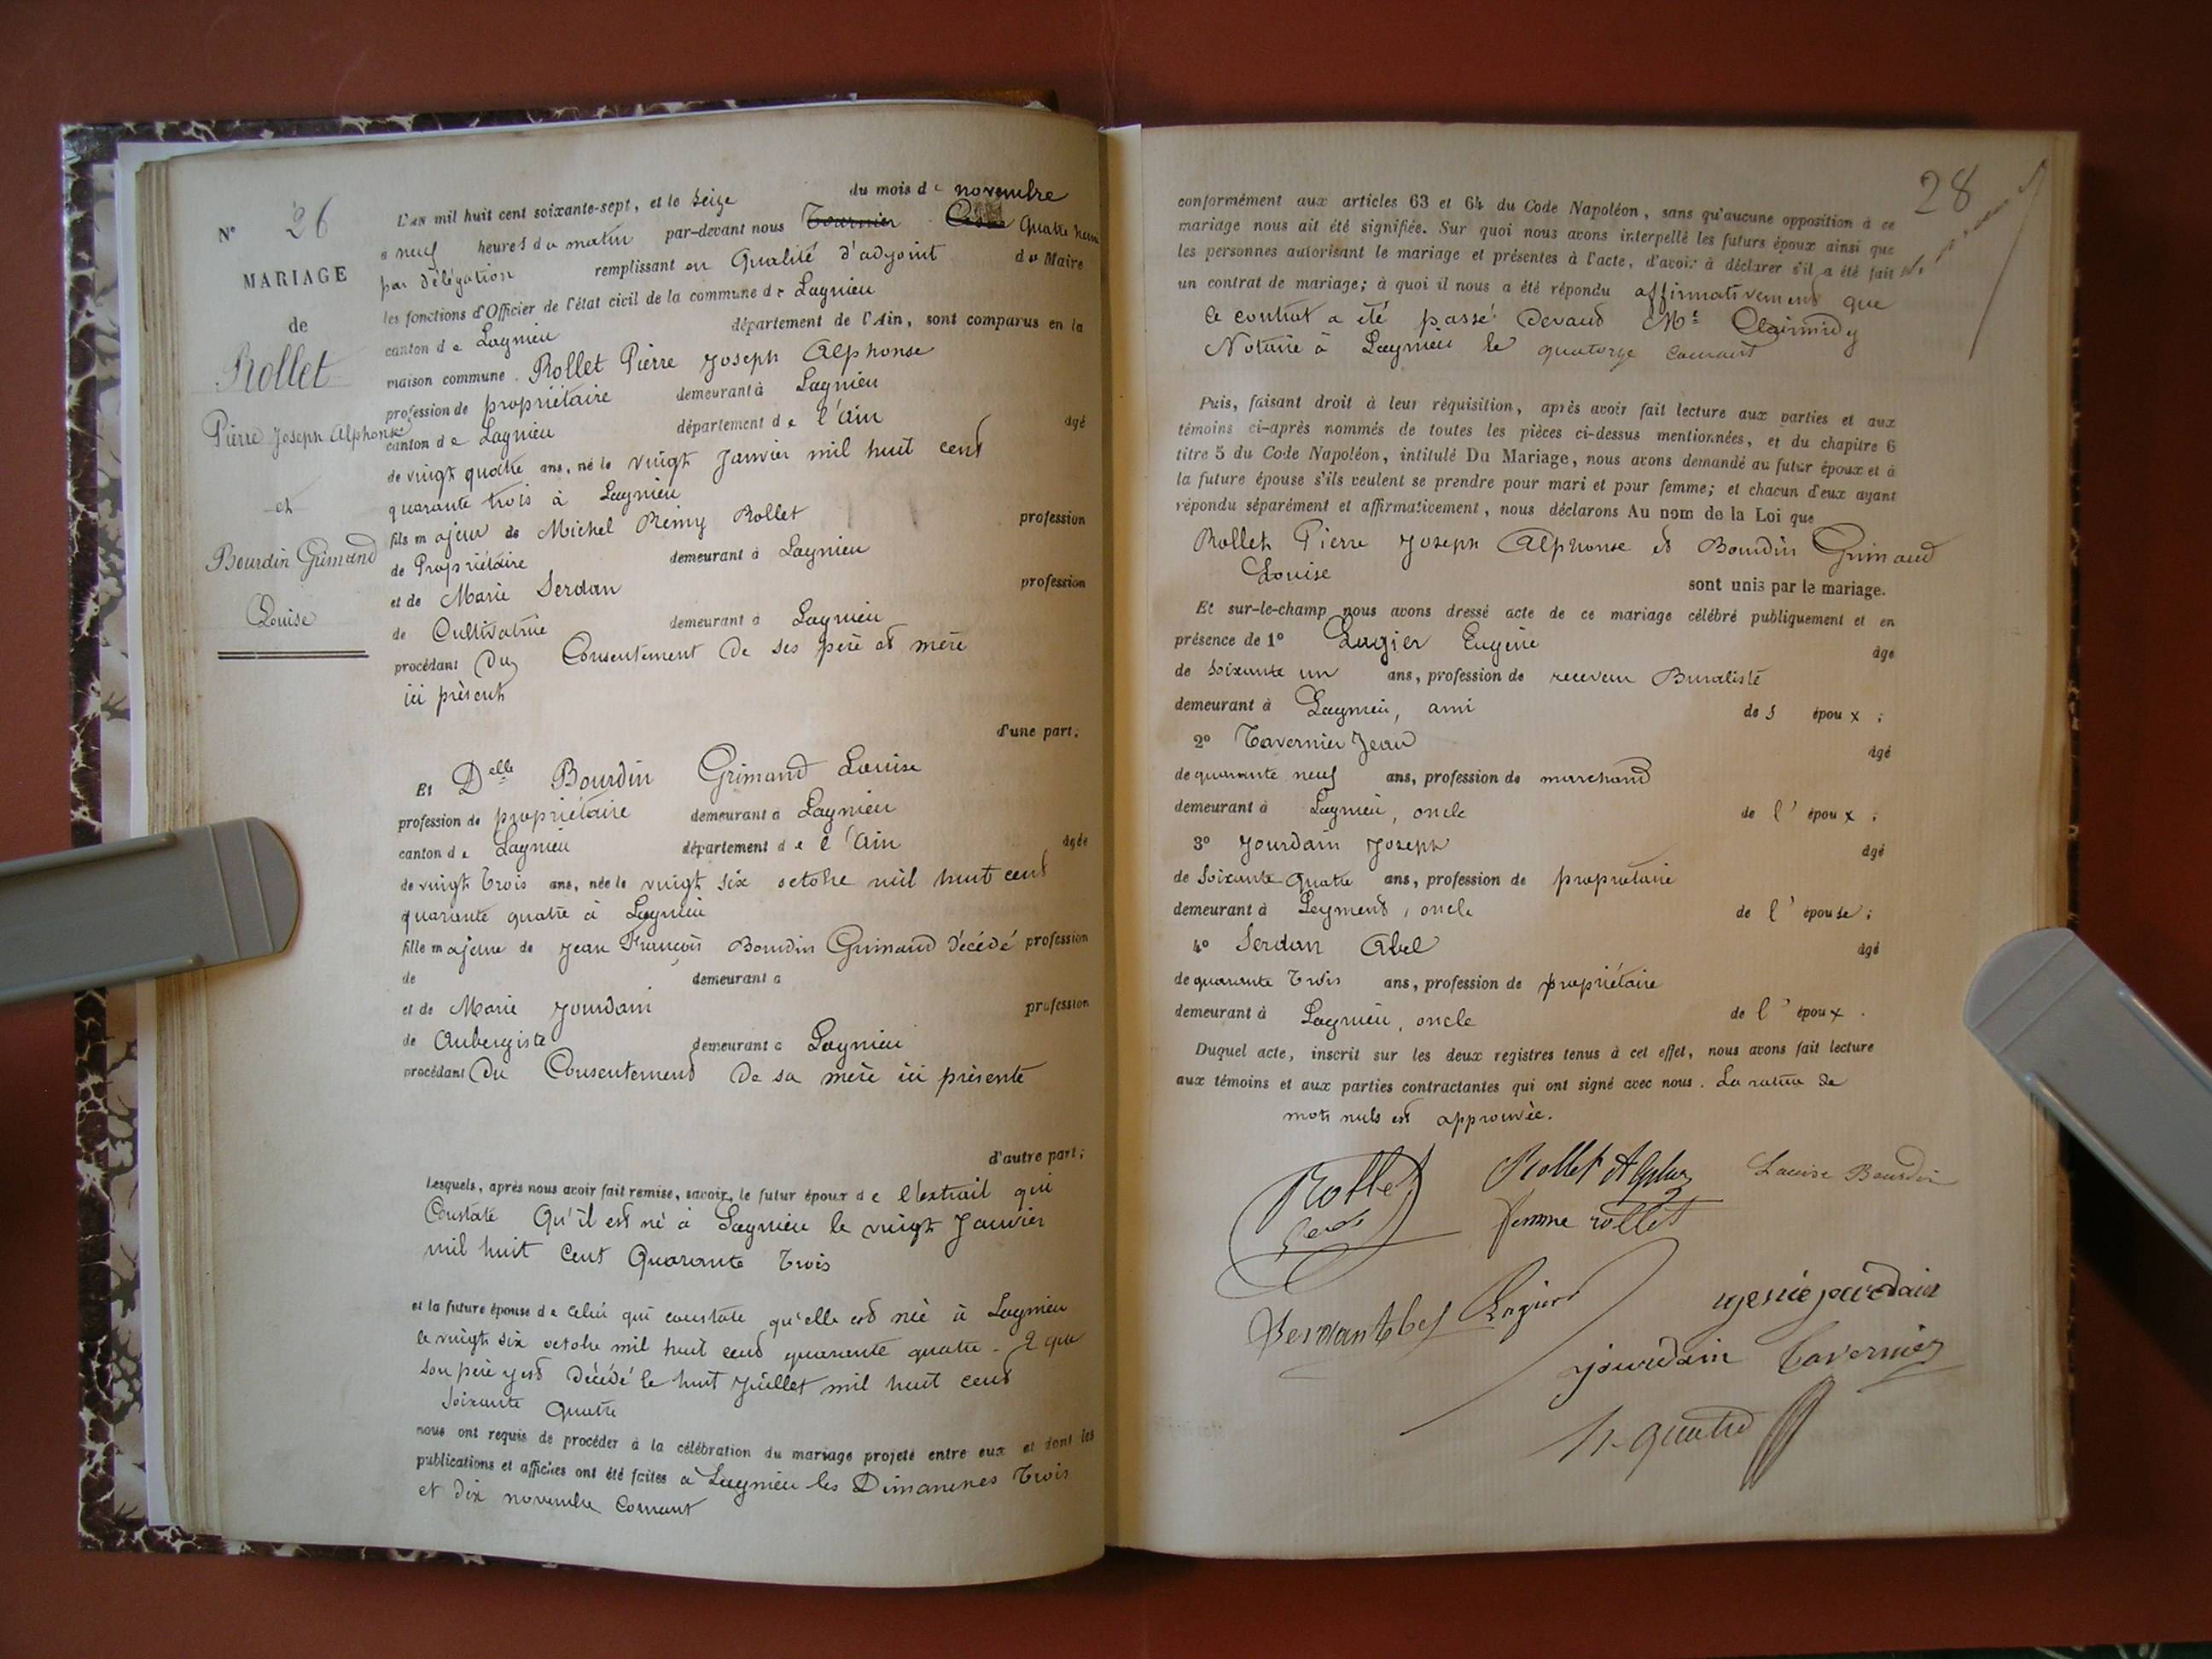 N° 26
MARIAGE
de
Rollet
Pierre Joseph Alphonse
et
Bourdin Grimand
Louise
L'AN mil huit cent soixante-sept, et le seize du mois de novembre
a neuf heures du matin par-devant nous Tournier Quatre
par délégation remplissant en Qualité d'adjoint du Maire
les fonctions d'Officier de l'état civil de la commune de Lagnieu
canton de Lagnieu département de l'Ain, sont comparus en la
maison commune Rollet Pierre Joseph Alphonse
profession de propriétaire demeurant à Lagnieu
canton de Lagnieu département de l'Ain âgé
de vingt quatre ans, né le vingt Janvier mil huit cent
quarante trois à Lagnieu
fils majeur de Michel Rémy Rollet profession
de Propriétaire demeurant à Lagnieu
et de Marie Serdan profession
de Cultivatrice demeurant à Lagnieu
procédant du Consentement de ses père et mère
ici présent
d'une part;
Et Delle Bourdin Grimand Louise
profession de propriétaire demeurant à Lagnieu
canton de Lagnieu département de l'Ain âgée
de vingt trois ans, née le vingt six octobre mil huit cent
quarante quatre à Lagnieu
fille majeure de Jean François Bourdin Grimand décédé profession
de demeurant a
et de Marie Jourdain profession
de Aubergiste demeurant à Lagnieu
procédant du Consentement de sa mère ici présente
d'autre part;
Lesquels, après nous avoir fait remise, savoir, le futur époux de l'extrait qui
Constate Qu'il est né à Lagnieu le vingt Janvier
mil huit Cent Quarante Trois
et la future épouse de celui qui constate qu'elle est née à Lagnieu
le vingt six octobre mil huit cent quarante quatre - & que
son père y est décédé le huit Juillet mil huit cent
soixante Quatre
nous ont requis de procéder à la célébration du mariage projeté entre eux et dont les
publications et affiches ont été faites à Lagnieu les Dimanches Trois
et dix novembre Courant
28
conformément aux articles 63 et 64 du Code Napoléon, sans qu'aucune opposition à ce
mariage nous ait été signifiée. Sur quoi nous avons interpellé les futurs époux ainsi que
les personnes autorisant le mariage et présentes à l'acte, d'avoir à déclarer s'il a été fait
un contrat de mariage; à quoi il nous a été répondu affirmativement que
le contrat a été passé devant Me
Notaire à Lagnieu le quatorze courant
Puis, faisant droit à leur réquisition, après avoir fait lecture aux parties et aux
témoins ci-après nommés de toutes les pièces ci-dessus mentionnées, et du chapitre 6
titre 5 du Code Napoléon, intitulé Du Mariage, nous avons demandé au futur époux et à
la future épouse s'ils veulent se prendre pour mari et pour femme; et chacun d'eux ayant
répondu séparément et affirmativement, nous déclarons Au nom de la Loi que
Rollet Pierre Joseph Alphonse et Bourdin Grimand
Louise
sont unis par le mariage.
Et sur-le-champ nous avons dressé acte de ce mariage célébré publiquement et en
présence de 1° Lagier Eugène âgé
de soixante un ans, profession de receveur Buraliste
demeurant à Lagnieu, ami des époux;
2° Tavernier Jean âgé
de quarante neuf ans, profession de marchand
demeurant à Lagnieu, oncle de l'époux;
3° Jourdain Joseph âgé
de soixante Quatre ans, profession de propriétaire
demeurant à Leyment, oncle de l'épouse;
4° Serdan Abel âgé
de quarante Trois ans, profession de propriétaire
demeurant à Lagnieu, oncle de l'époux.
Duquel acte, inscrit sur les deux registres tenus à cet effet, nous avons fait lecture
aux témoins et aux parties contractantes qui ont signé avec nous. La rature de
mots nuls est approuvée.
Rollet
Rollet Alphse
Louise Bourdin
femme rollet
Serdan Abel
Lagier
jourdain
jourdain
Tavernier